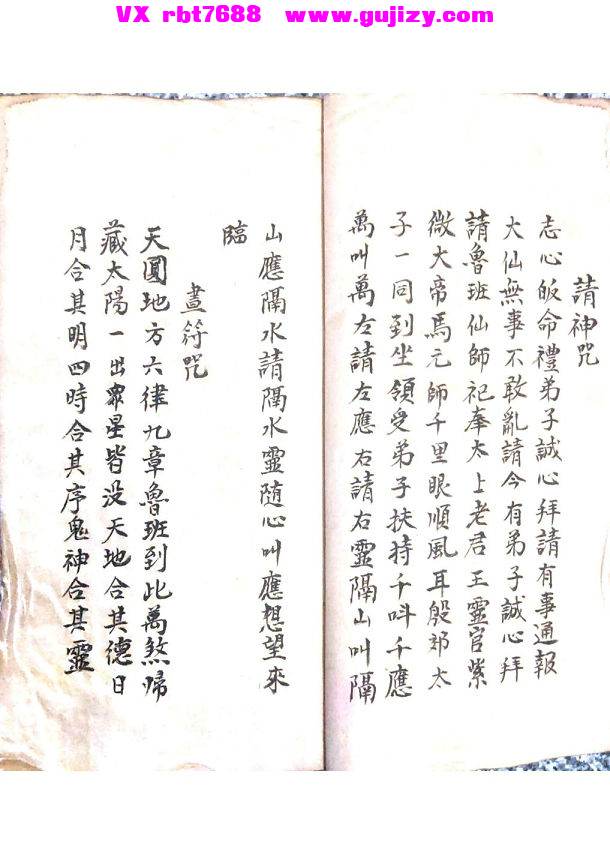 VX rbt7688 www.gujizy.com
請神咒
志心皈命禮弟子誠心拜請有事通報
大仙無事不敢亂請今有弟子誠心拜
請魯班仙師祀奉太上老君王靈官紫
微大帝馬元師千里眼順風耳殷郊太
子一同到坐領受弟子扶持千呌千應
萬叫萬左請左應右請右靈隔山叫隔
山應隔水請隔水靈随心叫應想望來
臨
畫符咒
天圓地方六律九章魯班到此萬煞歸
藏太陽一出衆星皆没天地合其德日
月合其明四時合其序鬼神合其靈